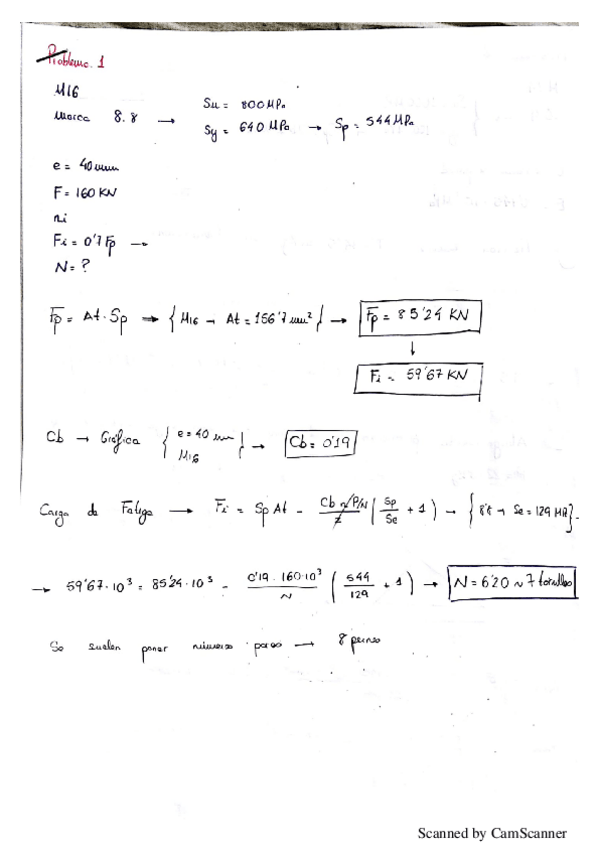 Problema. 1
M16
Marca 8.8 → Su = 800 MPa
Sy = 640 MPa → Sp = 544 MPa
e = 40 mm
F = 160 KN
ni
Fi = 0'7 Fp →
N = ?
Fp = At · Sp → { M16 → At = 156'7 mm² } → Fp = 85'24 KN
↓
Fi = 59'67 KN
Cb → Gráfica { e = 40 mm M16 } → Cb = 0'19
Carga de Fatiga → Fi = Sp At - Cb 2P/N / 2 ( Sp/Se + 1 ) → { 8'8 → Se = 129 MPa }
→ 59'67 · 10³ = 85'24 · 10³ - 0'19 · 160 · 10³ / N ( 544/129 + 1 ) → N = 6'20 ~ 7 tornillos
Se suelen poner números pares → 8 pernos
Scanned by CamScanner